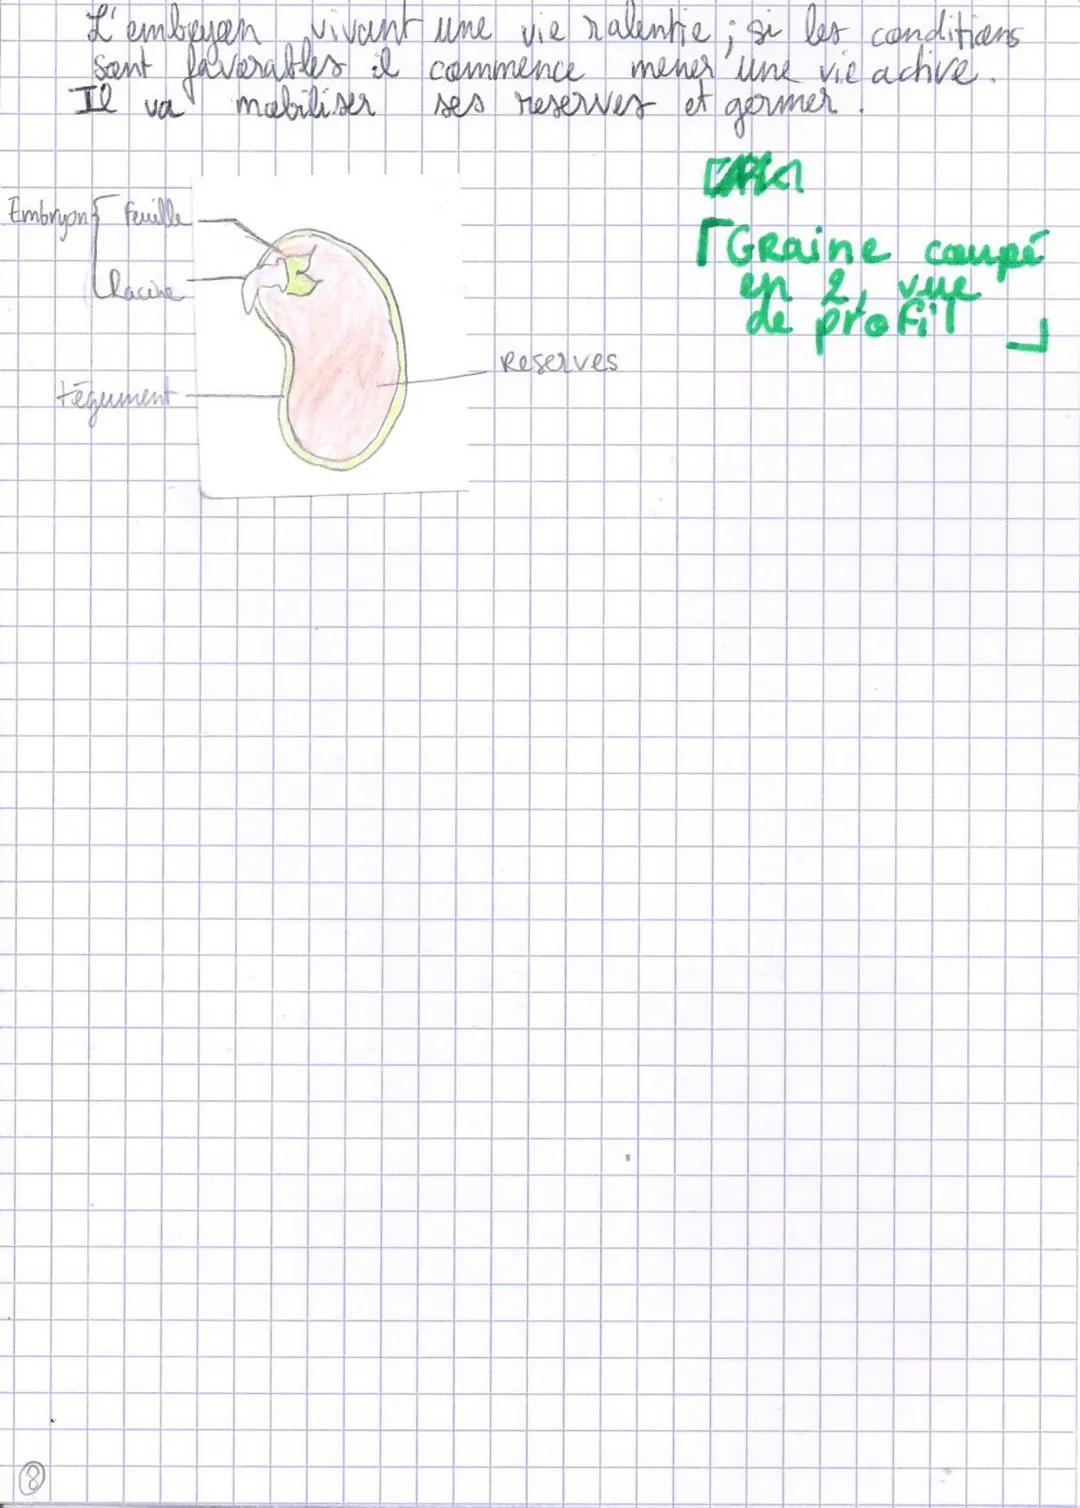 L'embryon vivant une vie ralentie ; si les conditions
sont favorables il commence mener une vie active.
Il va mobiliser ses reserves et germer.
Embryon
Feuille
Racine
tégument
reserves
Graine coupé
en 2, vue
de profil
8